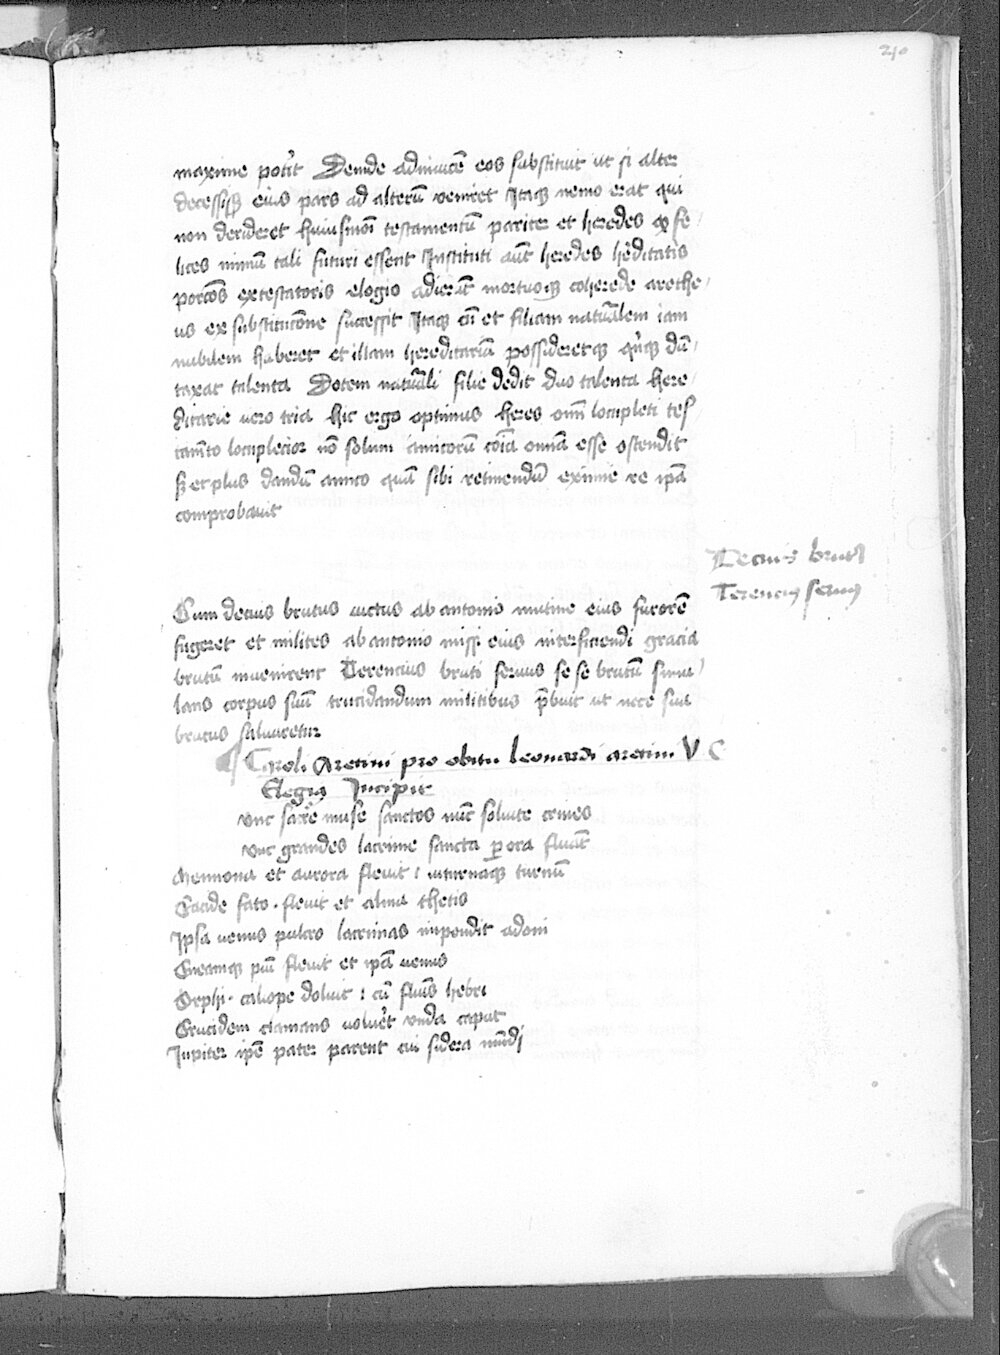 210
maxime potũt Deinde adinuicẽ eos substituit ut si alter
decessisꝫ eius pars ad alterũ veniret Itaqꝫ nemo erat qui
non derideret huiusmoĩ testamentũ pariter et heredes ꝙ fe
lices nimiũ tali futuri essent Instituti aũt heredes hẽditatis
porcõs ex testatoris elogio adierũt mortuoqꝫ coherede arethe
us ex substitucõne successit Itaqꝫ cũ et filiam natũalem iam
nubilem haberet et illam hereditariã possideretqꝫ qũqꝫ dũ
taxat talenta Dotem natũali filie dedit duo talenta here
ditarie vero tria hic ergo optimus heres omĩ locupleti tes
tamẽto locuplecior nõ solum amicorũ cõia omnia esse ostendit
sꝫ et plus dandũ amico quã sibi retinendũ eximie re ipã
comprobauit
Decius brutus
Terencius seruus
Cum decius brutus uictus ab antonio mutine eius furorẽ
fugeret et milites ab antonio missi eius interficiendi gracia
brutũ inuenirent Terencius bruti seruus se se brutũ simu
lans corpus suũ trucidandum militibus p̃buit ut nece sui
brutus saluaretur
Caroli Aretini pro obitu leonardi aretini V C
Elegia Incipit
unc sacre muse sanctos nũc soluite crines
unc grandes lacrime sancta per ora fluãt
Mennona et aurora fleuit : iuturnaqꝫ turnũ
Eacide fato . fleuit et alma thetis
Ipsa uenus pulcro lacrimas inpendit adoni
Eneamqꝫ piũ fleuit et ipã uenus
Orphi . caliope doluit : cũ fluũs hebri
Erucidem clamans voluẽt unda caput
Jupiter ipẽ pater parent cui sidera mũdi